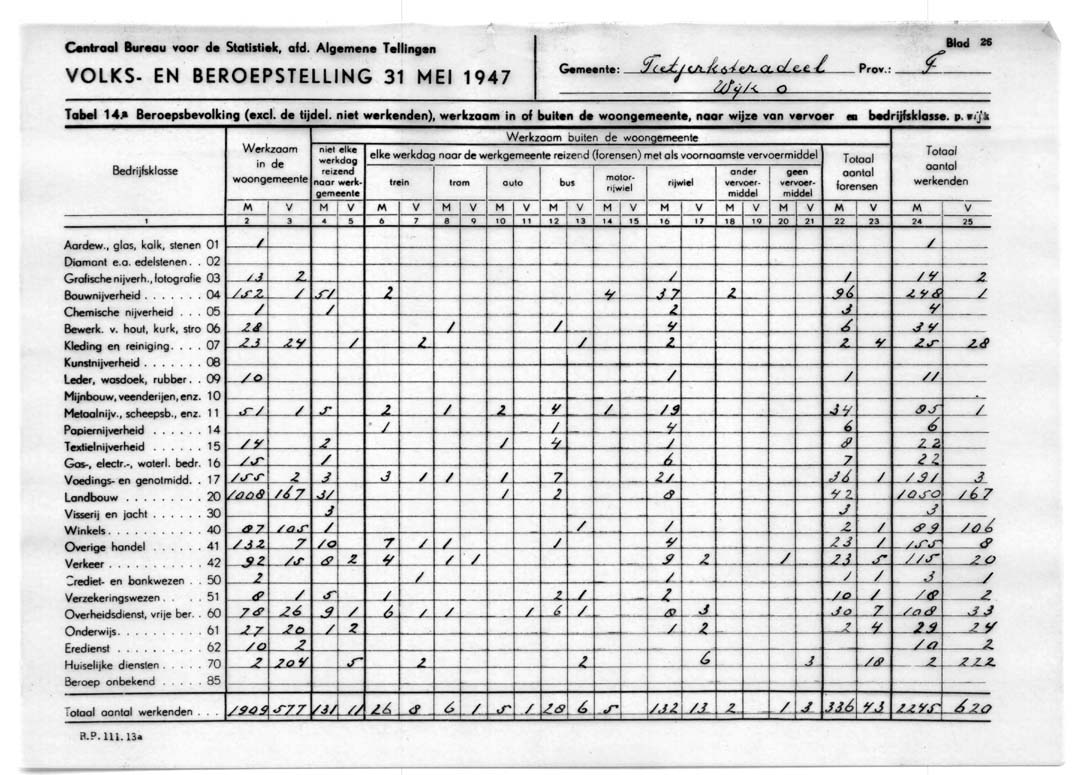 Centraal Bureau voor de Statistiek, afd. Algemene Tellingen
VOLKS- EN BEROEPSTELLING 31 MEI 1947
Blad 26
Gemeente: Tietjerksteradeel Prov.: F
Wijk O
Tabel 14a Beroepsbevolking (excl. de tijdel. niet werkenden), werkzaam in of buiten de woongemeente, naar wijze van vervoer en bedrijfsklasse. p. wijk
Bedrijfsklasse
Werkzaam in de woongemeente
Werkzaam buiten de woongemeente
niet elke werkdag reizend naar werkgemeente
elke werkdag naar de werkgemeente reizend (forensen) met als voornaamste vervoermiddel
trein tram auto bus motorrijwiel rijwiel ander vervoermiddel geen vervoermiddel
Totaal aantal forensen
Totaal aantal werkenden
M V M V M V M V M V M V M V M V M V M V M V M V
1 2 3 4 5 6 7 8 9 10 11 12 13 14 15 16 17 18 19 20 21 22 23 24 25
Aardew., glas, kalk, stenen 01 1 1
Diamant e.a. edelstenen. . 02
Grafische nijverh., fotografie 03 13 2 1 1 14 2
Bouwnijverheid . . . . . . . 04 152 1 51 2 4 37 2 96 248 1
Chemische nijverheid . . . 05 1 1 2 3 4
Bewerk. v. hout, kurk, stro 06 28 1 1 4 6 34
Kleding en reiniging. . . . 07 23 24 1 2 1 2 2 4 25 28
Kunstnijverheid . . . . . . . 08
Leder, wasdoek, rubber. . 09 10 1 1 11
Mijnbouw, veenderijen, enz. 10
Metaalnijv., scheepsb., enz. 11 51 1 5 2 1 2 4 1 19 34 85 1
Papiernijverheid . . . . . . 14 1 1 4 6 6
Textielnijverheid . . . . . . 15 14 2 1 4 1 8 22
Gas-, electr.-, waterl. bedr. 16 15 1 6 7 22
Voedings- en genotmidd. . 17 155 2 3 3 1 1 1 7 21 36 1 191 3
Landbouw . . . . . . . . . 20 1008 167 31 1 2 8 42 1050 167
Visserij en jacht . . . . . . 30 3 3 3
Winkels . . . . . . . . . . . 40 87 105 1 1 1 2 1 89 106
Overige handel . . . . . . 41 132 7 10 7 1 1 1 4 23 1 155 8
Verkeer . . . . . . . . . . . 42 92 15 8 2 4 1 1 9 2 1 23 5 115 20
Crediet- en bankwezen . . 50 2 1 1 1 1 3 1
Verzekeringswezen . . . . 51 8 1 5 1 2 1 2 10 1 18 2
Overheidsdienst, vrije ber. . 60 78 26 9 1 6 1 1 1 6 1 8 3 30 7 108 33
Onderwijs. . . . . . . . . . 61 27 20 1 2 1 2 2 4 29 24
Eredienst . . . . . . . . . . 62 10 2 10 2
Huiselijke diensten . . . . . 70 2 204 5 2 2 6 3 18 2 222
Beroep onbekend . . . . . 85
Totaal aantal werkenden . . . 1909 577 131 11 26 8 6 1 5 1 28 6 5 132 13 2 1 3 336 43 2245 620
R.P. 111. 13a